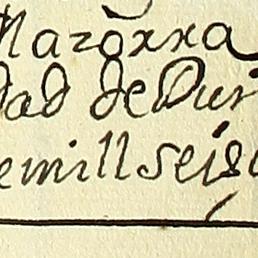 Mazorra
dad de Dur
emill seis